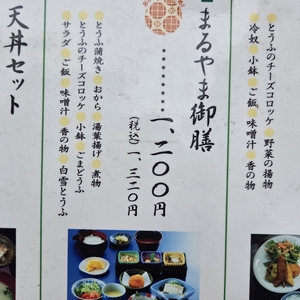 とうふのチーズコロッケ 野菜の揚物
冷奴 小鉢 ご飯 味噌汁 香の物
まるやま御膳
一、二〇〇円
(税込)一、三二〇円
とうふ蒲焼き おから 湯葉揚げ 煮物
とうふのチーズコロッケ 小鉢 ごまどうふ
サラダ ご飯 味噌汁 香の物 白雪とうふ
天丼セット